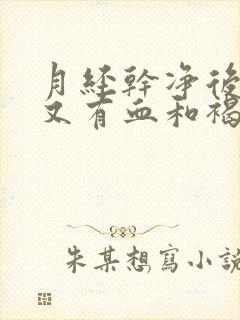 月經幹净後
又有血和褐
朱某想寫小説